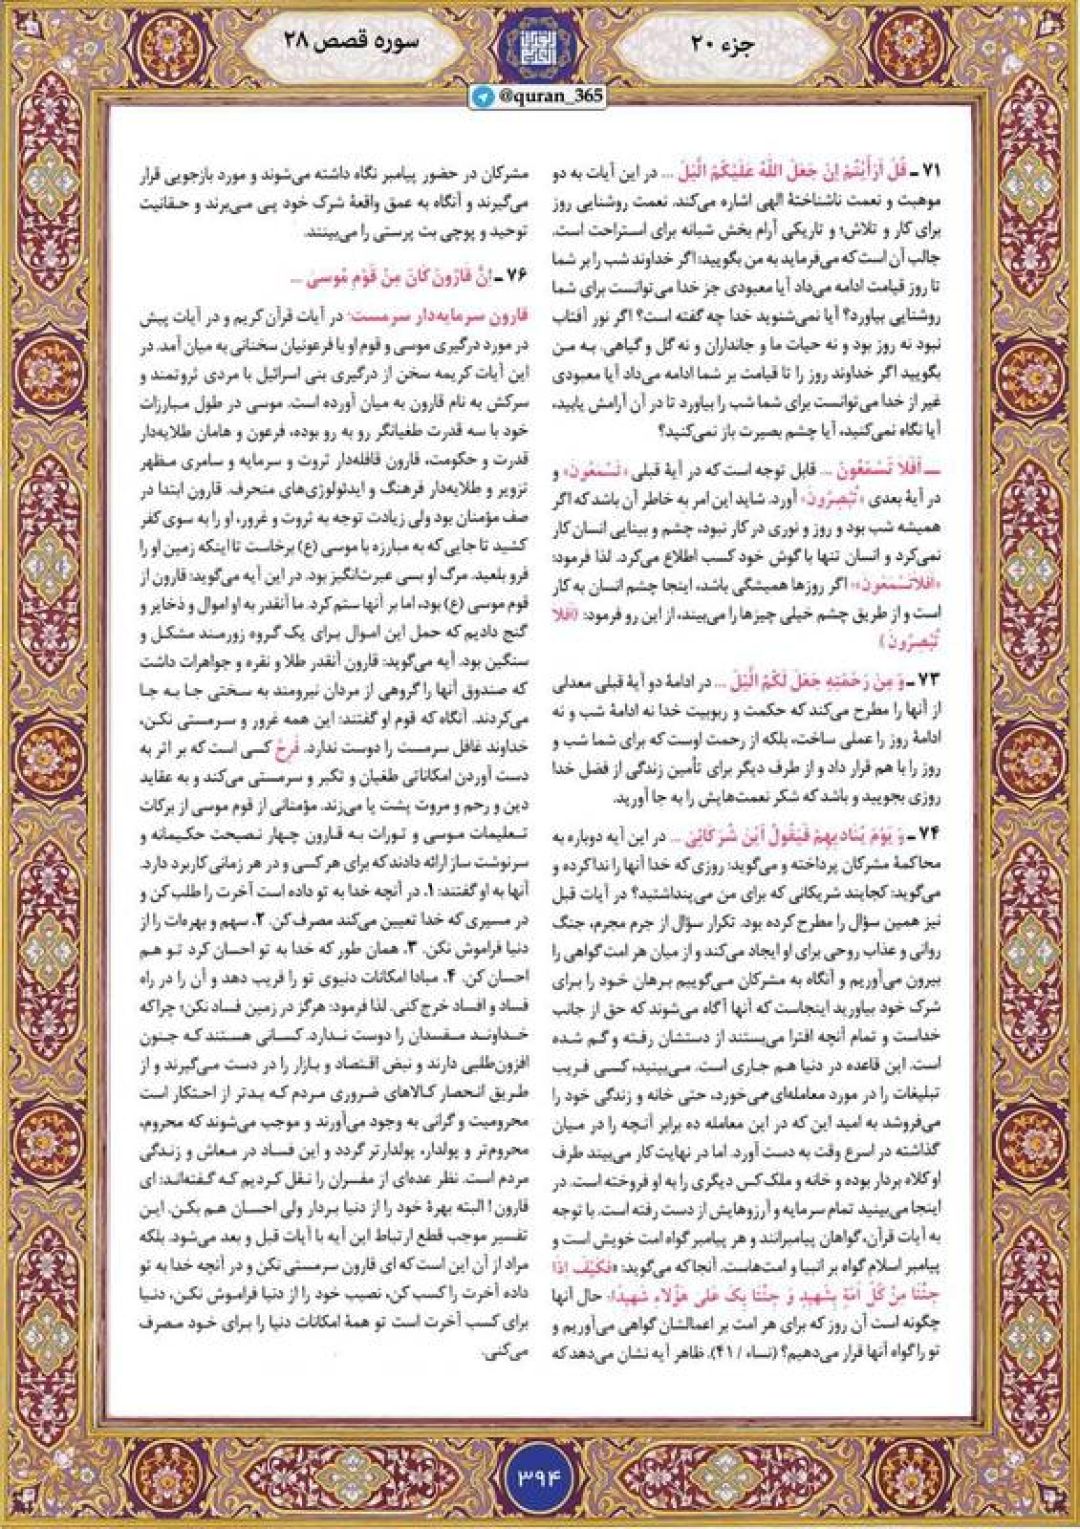 جزء ۲۰
سوره قصص ۲۸
@quran_365
۷۱ - قُلْ أَرَأَيْتُمْ إِنْ جَعَلَ اللَّهُ عَلَيْكُمُ الَّيْلَ ... در این آیات به دو
موهبت و نعمت ناشناختهٔ الهی اشاره می‌کند. نعمت روشنایی روز
برای کار و تلاش؛ و تاریکی آرام بخش شبانه برای استراحت است.
جالب آن است که می‌فرماید به من بگویید: اگر خداوند شب را بر شما
تا روز قیامت ادامه می‌داد آیا معبودی جز خدا می‌توانست برای شما
روشنایی بیاورد؟ آیا نمی‌شنوید خدا چه گفته است؟ اگر نور آفتاب
نبود نه روز بود و نه حیات ما و جانداران و نه گل و گیاهی. به من
بگویید اگر خداوند روز را تا قیامت بر شما ادامه می‌داد آیا معبودی
غیر از خدا می‌توانست برای شما شب را بیاورد تا در آن آرامش یابید،
آیا نگاه نمی‌کنید، آیا چشم بصیرت باز نمی‌کنید؟
ـ أَفَلَا تَسْمَعُونَ ... قابل توجه است که در آیهٔ قبلی «تَسْمَعُونَ» و
در آیهٔ بعدی «تُبْصِرُونَ» آورد. شاید این امر به خاطر آن باشد که اگر
همیشه شب بود و روز و نوری در کار نبود، چشم و بینایی انسان کار
نمی‌کرد و انسان تنها با گوش خود کسب اطلاع می‌کرد. لذا فرمود:
«أَفَلَا تَسْمَعُونَ»؛ اگر روزها همیشگی باشد، اینجا چشم انسان به کار
است و از طریق چشم خیلی چیزها را می‌بیند، از این رو فرمود: (أَفَلَا
تُبْصِرُونَ)
۷۳ - وَ مِنْ رَحْمَتِهِ جَعَلَ لَكُمُ الَّيْلَ ... در ادامهٔ دو آیهٔ قبلی معدلی
از آنها را مطرح می‌کند که حکمت و ربوبیت خدا نه ادامهٔ شب و نه
ادامهٔ روز را عملی ساخت، بلکه از رحمت اوست که برای شما شب و
روز را با هم قرار داد و از طرف دیگر برای تأمین زندگی از فضل خدا
روزی بجویید و باشد که شکر نعمت‌هایش را به جا آورید.
۷۴ - وَ يَوْمَ يُنَادِيهِمْ فَيَقُولُ أَيْنَ شُرَكَائِيَ ... در این آیه دوباره به
محاکمهٔ مشرکان پرداخته و می‌گوید: روزی که خدا آنها را ندا کرده و
می‌گوید: کجایند شریکانی که برای من می‌پنداشتید؟ در آیات قبل
نیز همین سؤال را مطرح کرده بود. تکرار سؤال از جرم مجرم، جنگ
روانی و عذاب روحی برای او ایجاد می‌کند و از میان هر امت گواهی را
بیرون می‌آوریم و آنگاه به مشرکان می‌گوییم برهان خود را برای
شرک خود بیاورید اینجاست که آنها آگاه می‌شوند که حق از جانب
خداست و تمام آنچه افترا می‌بستند از دستشان رفته و گم شده
است. این قاعده در دنیا هم جاری است. می‌بینید، کسی فریب
تبلیغات را در مورد معامله‌ای می‌خورد، حتی خانه و زندگی خود را
می‌فروشد به امید این که در این معامله ده برابر آنچه را در میان
گذاشته در اسرع وقت به دست آورد. اما در نهایت کار می‌بیند طرف
او کلاه بردار بوده و خانه و ملک کس دیگری را به او فروخته است. در
اینجا می‌بینید تمام سرمایه و آرزوهایش از دست رفته است. با توجه
به آیات قرآن، گواهان پیامبرانند و هر پیامبر گواه امت خویش است و
پیامبر اسلام گواه بر انبیا و امت‌هاست. آنجا که می‌گوید: «فَكَيْفَ إِذَا
جِئْنَا مِنْ كُلِّ أُمَّةٍ بِشَهِيدٍ وَ جِئْنَا بِكَ عَلَى هَؤُلَاءِ شَهِيدًا؛ حال آنها
چگونه است آن روز که برای هر امت بر اعمالشان گواهی می‌آوریم و
تو را گواه آنها قرار می‌دهیم؟ (نساء / ۴۱). ظاهر آیه نشان می‌دهد که
مشرکان در حضور پیامبر نگاه داشته می‌شوند و مورد بازجویی قرار
می‌گیرند و آنگاه به عمق واقعهٔ شرک خود پی می‌برند و حقانیت
توحید و پوچی بت پرستی را می‌بینند.
۷۶ - إِنَّ قَارُونَ كَانَ مِنْ قَوْمِ مُوسَى ...
قارون سرمایه‌دار سرمست؛ در آیات قرآن کریم و در آیات پیش
در مورد درگیری موسی و قوم او با فرعونیان سخنانی به میان آمد. در
این آیات کریمه سخن از درگیری بنی اسرائیل با مردی ثروتمند و
سرکش به نام قارون به میان آورده است. موسی در طول مبارزات
خود با سه قدرت طغیانگر رو به رو بوده، فرعون و هامان طلایه‌دار
قدرت و حکومت، قارون قافله‌دار ثروت و سرمایه و سامری مظهر
تزویر و طلایه‌دار فرهنگ و ایدئولوژی‌های منحرف. قارون ابتدا در
صف مؤمنان بود ولی زیادت توجه به ثروت و غرور، او را به سوی کفر
کشید تا جایی که به مبارزه با موسی (ع) برخاست تا اینکه زمین او را
فرو بلعید. مرگ او بسی عبرت‌انگیز بود. در این آیه می‌گوید: قارون از
قوم موسی (ع) بود، اما بر آنها ستم کرد. ما آنقدر به او اموال و ذخایر و
گنج دادیم که حمل این اموال برای یک گروه زورمند مشکل و
سنگین بود. آیه می‌گوید: قارون آنقدر طلا و نقره و جواهرات داشت
که صندوق آنها را گروهی از مردان نیرومند به سختی جا به جا
می‌کردند. آنگاه که قوم او گفتند: این همه غرور و سرمستی نکن،
خداوند غافل سرمست را دوست ندارد. فَرِحٌ کسی است که بر اثر به
دست آوردن امکاناتی طغیان و تکبر و سرمستی می‌کند و به عقاید
دین و رحم و مروت پشت پا می‌زند. مؤمنانی از قوم موسی از برکات
تعلیمات موسی و تورات به قارون چهار نصیحت حکیمانه و
سرنوشت ساز ارائه دادند که برای هر کسی و در هر زمانی کاربرد دارد.
آنها به او گفتند: ۱. در آنچه خدا به تو داده است آخرت را طلب کن و
در مسیری که خدا تعیین می‌کند مصرف کن. ۲. سهم و بهره‌ات را از
دنیا فراموش نکن. ۳. همان طور که خدا به تو احسان کرد تو هم
احسان کن. ۴. مبادا امکانات دنیوی تو را فریب دهد و آن را در راه
فساد و افساد خرج کنی. لذا فرمود: هرگز در زمین فساد نکن؛ چراکه
خداوند مفسدان را دوست ندارد. کسانی هستند که جنون
افزون‌طلبی دارند و نبض اقتصاد و بازار را در دست می‌گیرند و از
طریق انحصار کالاهای ضروری مردم که بدتر از احتکار است
محرومیت و گرانی به وجود می‌آورند و موجب می‌شوند که محروم،
محروم‌تر و پولدار، پولدارتر گردد و این فساد در معاش و زندگی
مردم است. نظر عده‌ای از مفسران را نقل کردیم که گفته‌اند: ای
قارون! البته بهرهٔ خود را از دنیا بردار ولی احسان هم بکن. این
تفسیر موجب قطع ارتباط این آیه با آیات قبل و بعد می‌شود. بلکه
مراد از آن این است که ای قارون سرمستی نکن و در آنچه خدا به تو
داده آخرت را کسب کن، نصیب خود را از دنیا فراموش نکن، دنیا
برای کسب آخرت است تو همهٔ امکانات دنیا را برای خود مصرف
می‌کنی.
۳۹۴